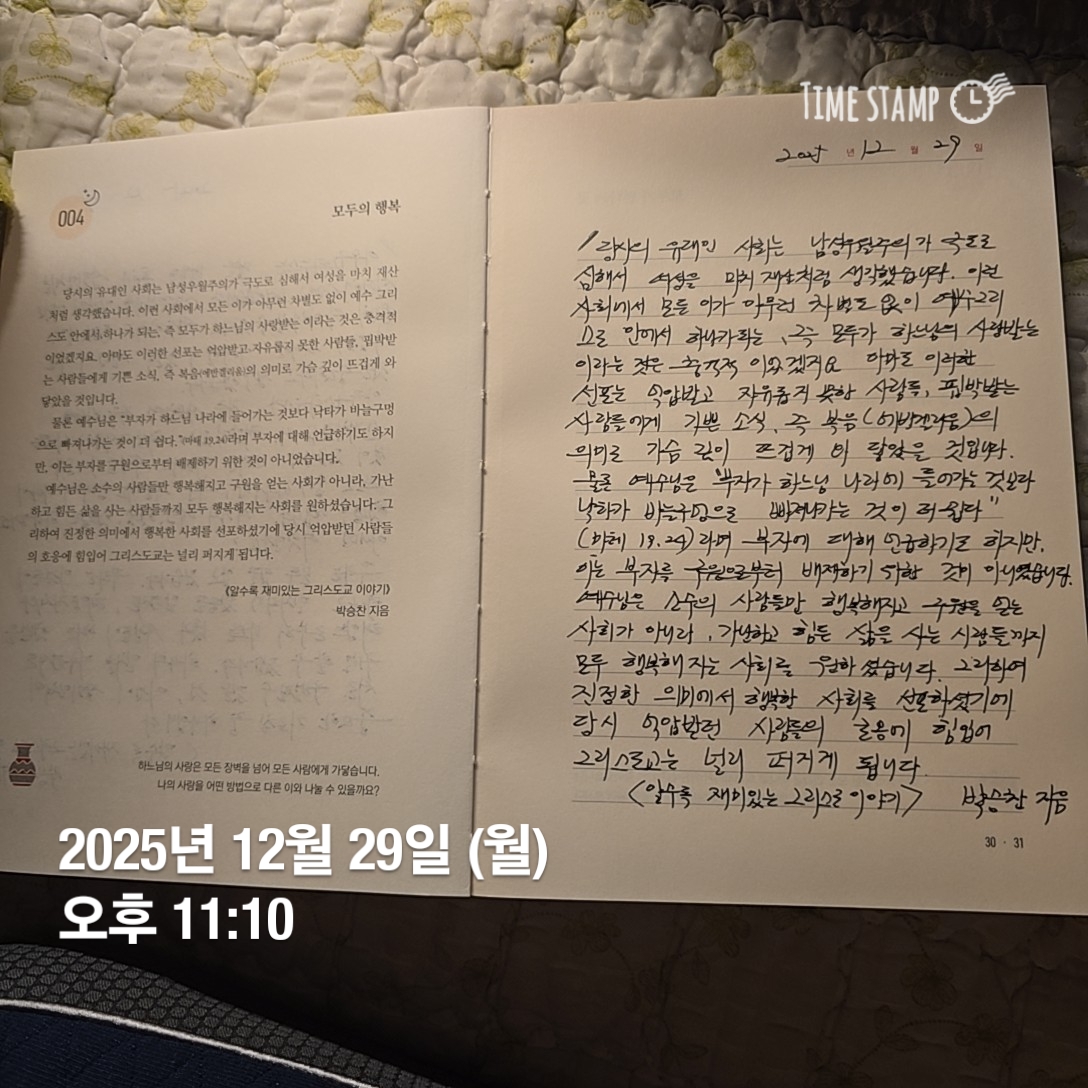 TIME STAMP
004
모두의 행복
당시의 유대인 사회는 남성우월주의가 극도로 심해서 여성을 마치 재산
처럼 생각했습니다. 이런 사회에서 모든 이가 아무런 차별도 없이 예수 그리
스도 안에서 하나가 되는, 즉 모두가 하느님의 사랑받는 이라는 것은 충격적
이었겠지요. 아마도 이러한 선포는 억압받고 자유롭지 못한 사람들, 핍박받
는 사람들에게 기쁜 소식, 즉 복음(에반겔리움)의 의미로 가슴 깊이 뜨겁게 와
닿았을 것입니다.
물론 예수님은 “부자가 하느님 나라에 들어가는 것보다 낙타가 바늘구멍
으로 빠져나가는 것이 더 쉽다.”(마태 19,24)라며 부자에 대해 언급하기도 하지
만, 이는 부자를 구원으로부터 배제하기 위한 것이 아니었습니다.
예수님은 소수의 사람들만 행복해지고 구원을 얻는 사회가 아니라, 가난
하고 힘든 삶을 사는 사람들까지 모두 행복해지는 사회를 원하셨습니다. 그
리하여 진정한 의미에서 행복한 사회를 선포하셨기에 당시 억압받던 사람들
의 호응에 힘입어 그리스도교는 널리 퍼지게 됩니다.
《알수록 재미있는 그리스도교 이야기》
박승찬 지음
하느님의 사랑은 모든 장벽을 넘어 모든 사람에게 가닿습니다.
나의 사랑을 어떤 방법으로 다른 이와 나눌 수 있을까요?
2025년 12월 29일
당시의 유대인 사회는 남성우월주의가 극도로
심해서 여성을 마치 재산처럼 생각했습니다. 이런
사회에서 모든 이가 아무런 차별도 없이 예수그리
스도 안에서 하나가 되는, 즉 모두가 하느님의 사랑받는
이라는 것은 충격적 이었겠지요 아마도 이러한
선포는 억압받고 자유롭지 못한 사람들, 핍박받는
사람들에게 기쁜 소식, 즉 복음(에반겔리움)의
의미로 가슴 깊이 뜨겁게 와 닿았을 것입니다.
물론 예수님은 "부자가 하느님 나라에 들어가는 것보다
낙타가 바늘구멍으로 빠져나가는 것이 더 쉽다"
(마태 19.24)라며 부자에 대해 언급하기도 하지만,
이는 부자를 구원으로부터 배제하기 위한 것이 아니었습니다.
예수님은 소수의 사람들만 행복해지고 구원을 얻는
사회가 아니라, 가난하고 힘든 삶을 사는 사람들까지
모두 행복해 지는 사회를 원하셨습니다. 그리하여
진정한 의미에서 행복한 사회를 선포하셨기에
당시 억압받던 사람들의 호응에 힘입어
그리스도교는 널리 퍼지게 됩니다.
<알수록 재미있는 그리스도 이야기> 박승찬 지음
30 · 31
2025년 12월 29일 (월)
오후 11:10